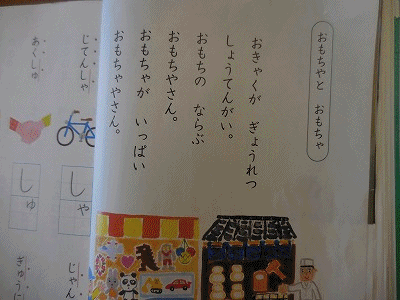 おもちやと おもちゃ
おきゃくが ぎょうれつ
しょうてんがい。
おもちの ならぶ
おもちやさん。
おもちゃが いっぱい
おもちゃやさん。
じてんしゃ
しゃ
じゃん
あくしゅ
しゅ
ぎゅうに